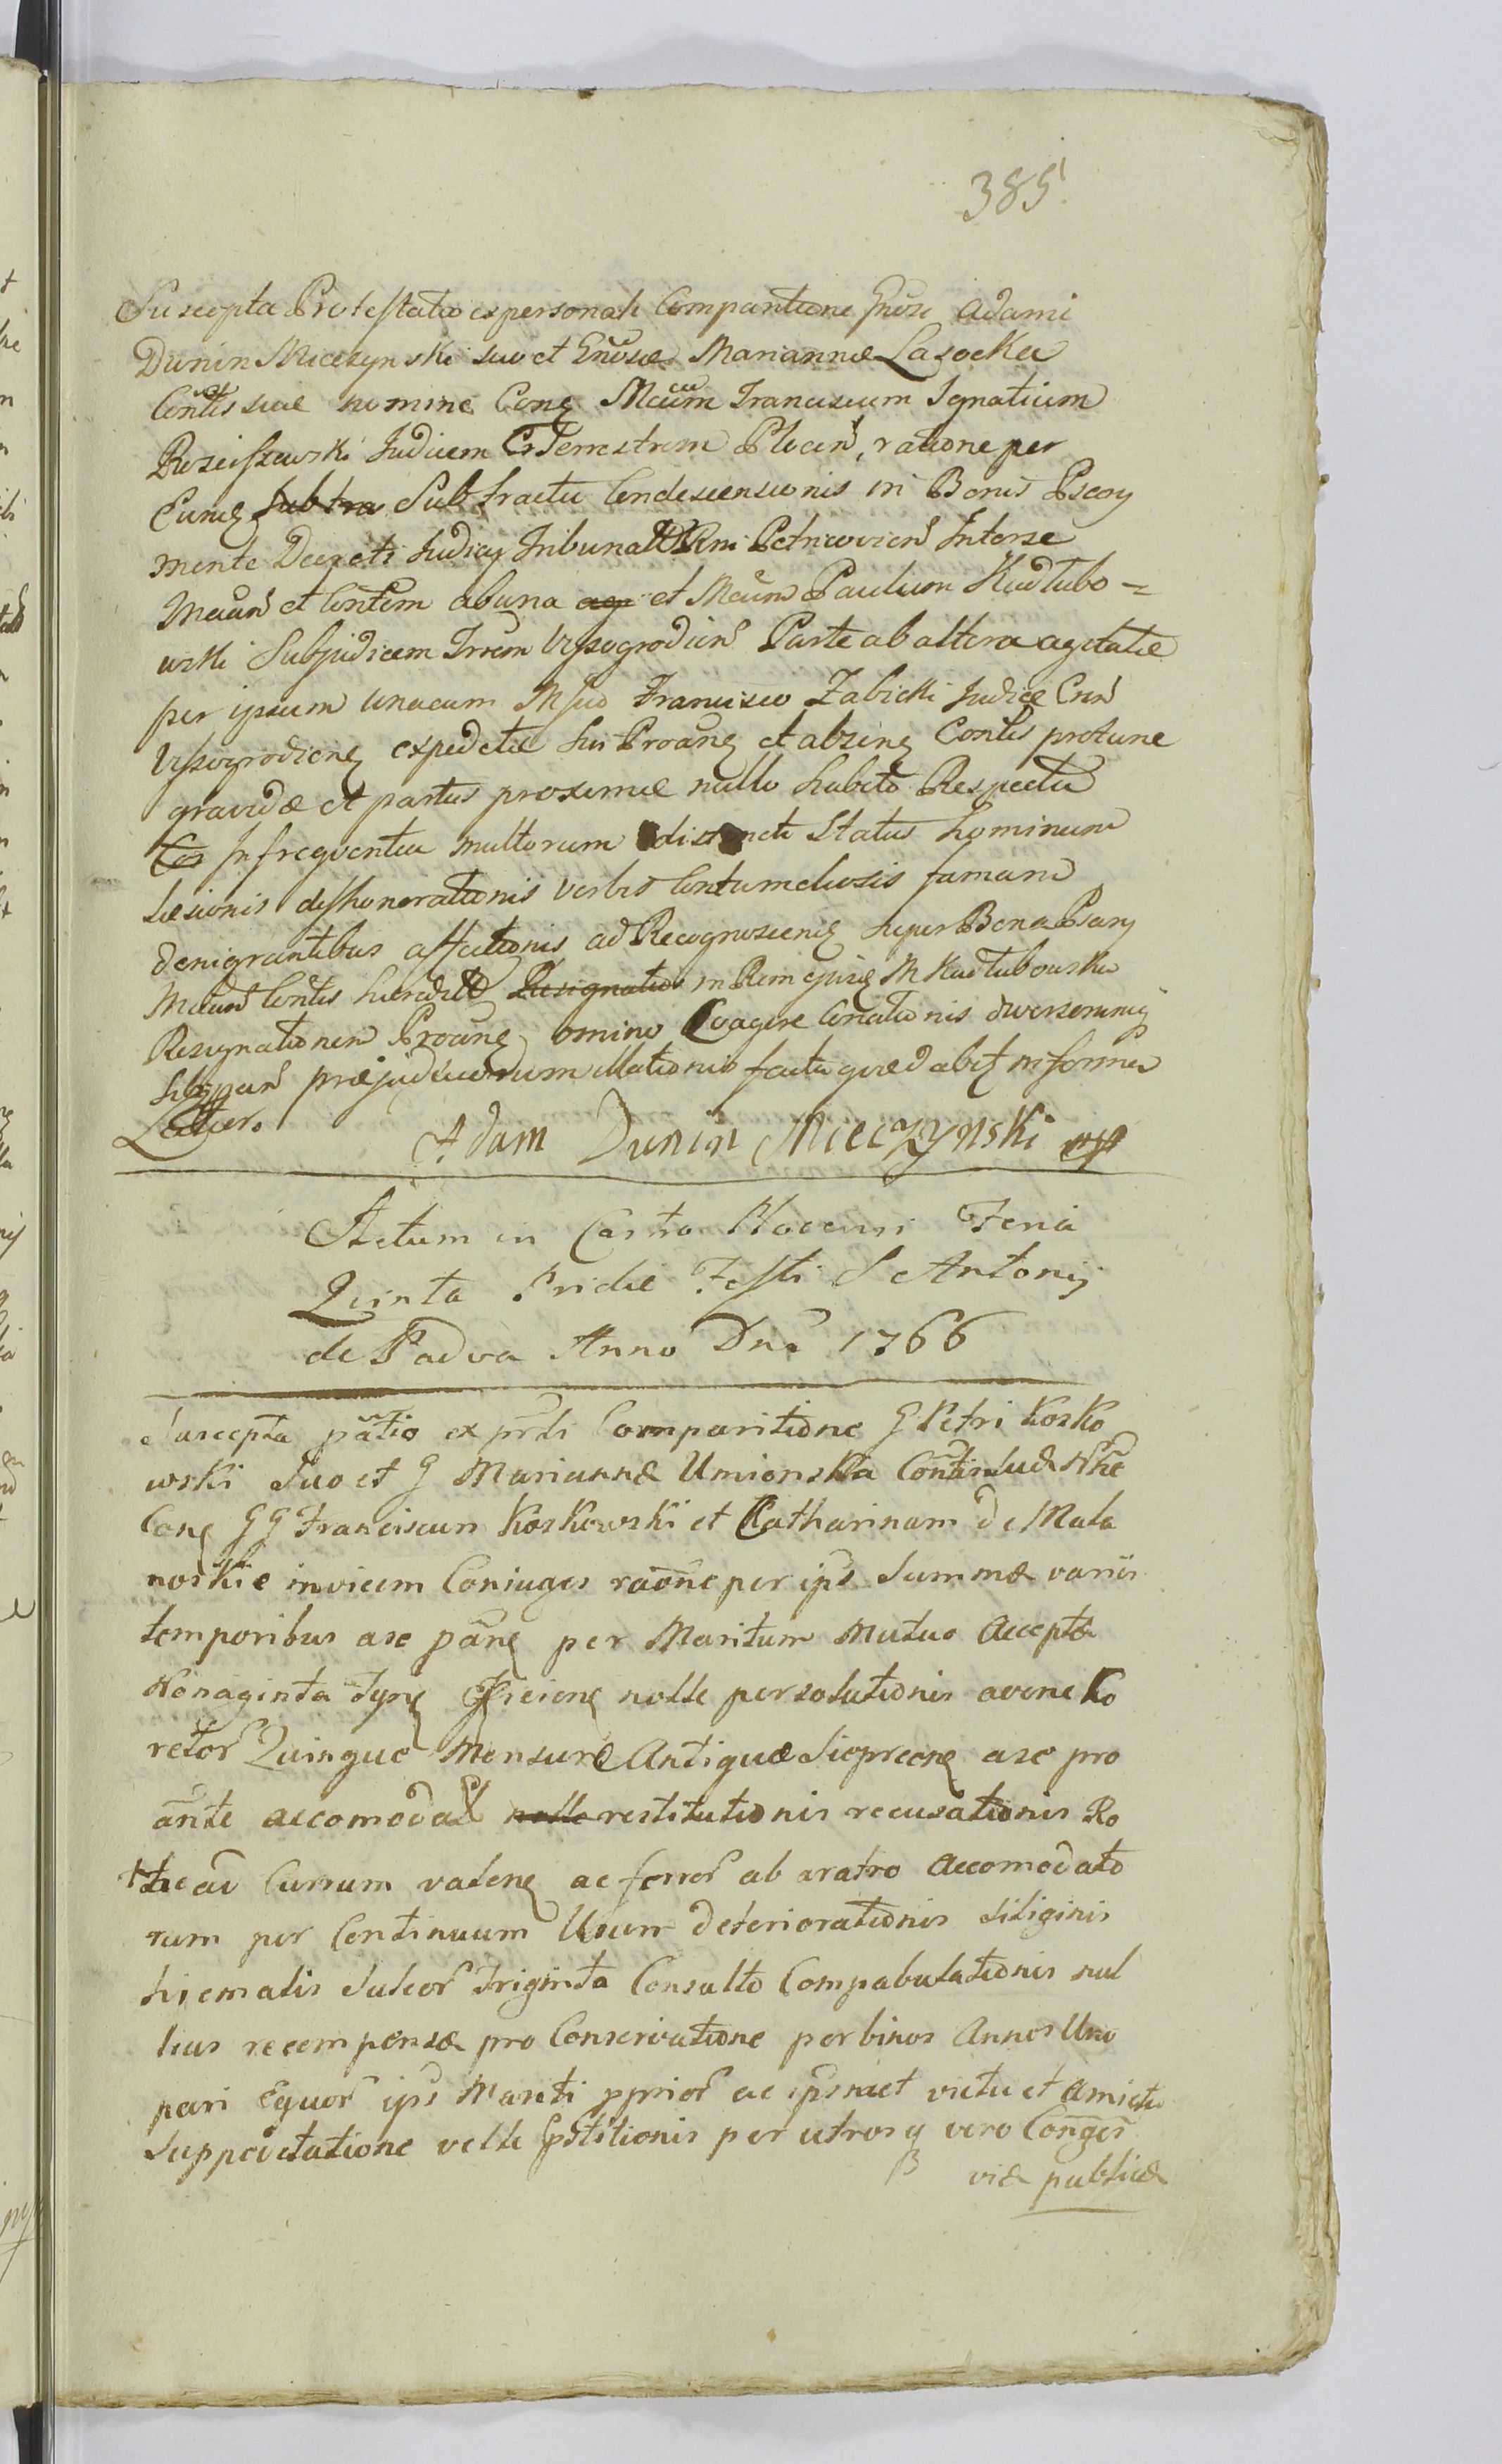 385.
Suscepta Protestatio ex personali Comparitione Gnosi Adami
Dunin Mieczynski suo et Gnosae Mariannae Lasocka
Contis suae nomine Cong Mcum Franciscum Ignatium
Rosciszewski Judicem CrTerrestrem Plocen, ratione per
Eundg sub tra Sub tractu Condescensionis in Bonis Psary
mente Decreti Judicy Tribunal Rni Petricovien Interse
Mcum et Contem ab una age et Mcum Paulum Kadlubo =
wski Subjudicem Trrem Vyssogrodien Parte ab altera agitatae
per ipsum unacum Msuo Francisco Zabicki Judice Cren
Vyssogrodieng expeditae sui Proang et absing Contis protunc
gravidae et partus proximae nullo habito Respectu
Cor In frequentia multorum distincti Status hominum
Laesionis disshonorationis verbis Contumeliosis famam
denigrantibus affectionis ad Recognoscendg super Bona Psary
Mcum Contis haeredit Resignatio in Rem ejusg M Kadlubowski
Resignationem Proang omino Coagere Conationis diversorumg
praejudiciorum illationis facta quod abit in forma
Latior.
Adam Dunin Mieczynski mp
Actum in Castro Plocensi Feria
Quinta Pridie Festi S Antonij
de Padva Anno Dni 1766
Suscepta patio ex prsli Comparitione G Petri Kosko
wski Suo et G Mariannae Umionska Contis Suae Nne
Cong GG Franciscum Koskowski et Catharinam De Mala
noskie invicem Coniuges raone per ips Summae variis
temporibus ase pang per Maritum Mutuo Acceptae
Nonaginta Tyng nolle persolutionis avene Ko
retor Quinque Mensure Antiquae Sieprceng ase pro
ante accomodat nolle restitutionis recusationis Ro
tae ad Currum valeng ac ferror ab aratro Accomodato
rum per Continuum Usum deteriorationis siliginis
hiemalis Sulcor Triginta Consulto Compabulationis nul
lius recompensae pro Conservatione per binos Annos Uno
pari Equor ips Mariti pprior ac ipsmet victu et Amictu
Suppeditatione velle per utrosq vero Conges
viae publicae